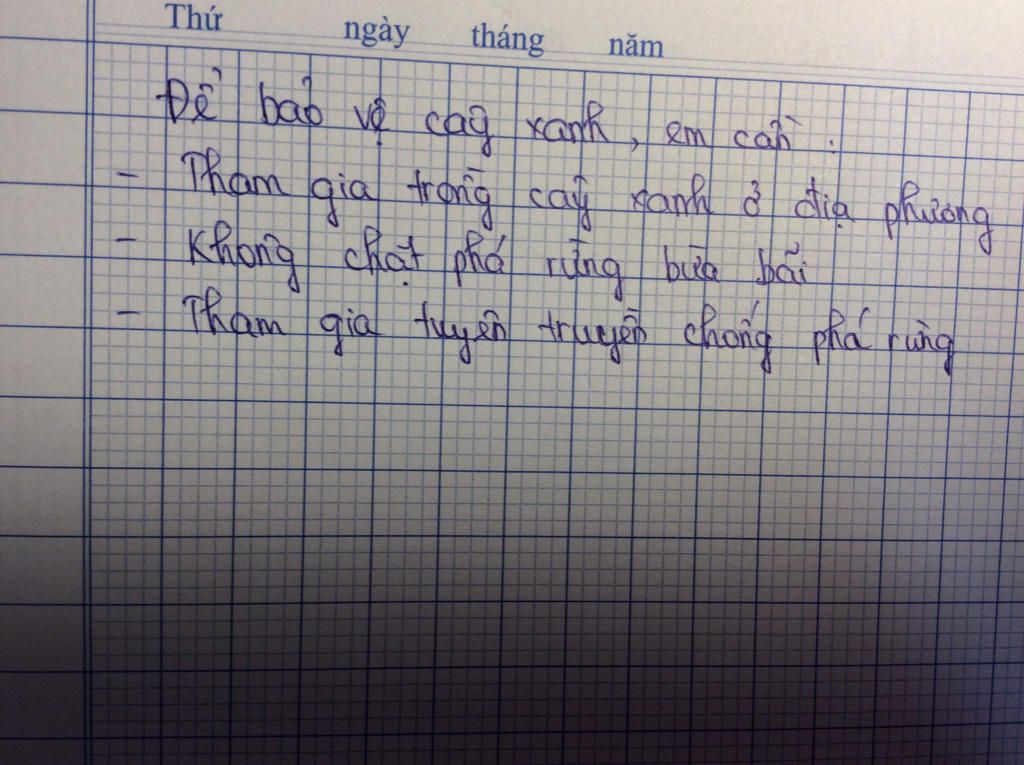 Thứ ngày tháng năm
Để bảo vệ cây xanh, em cần :
- Tham gia trồng cây xanh ở địa phương
- Không chặt phá rừng bừa bãi
- Tham gia tuyên truyền chống phá rừng